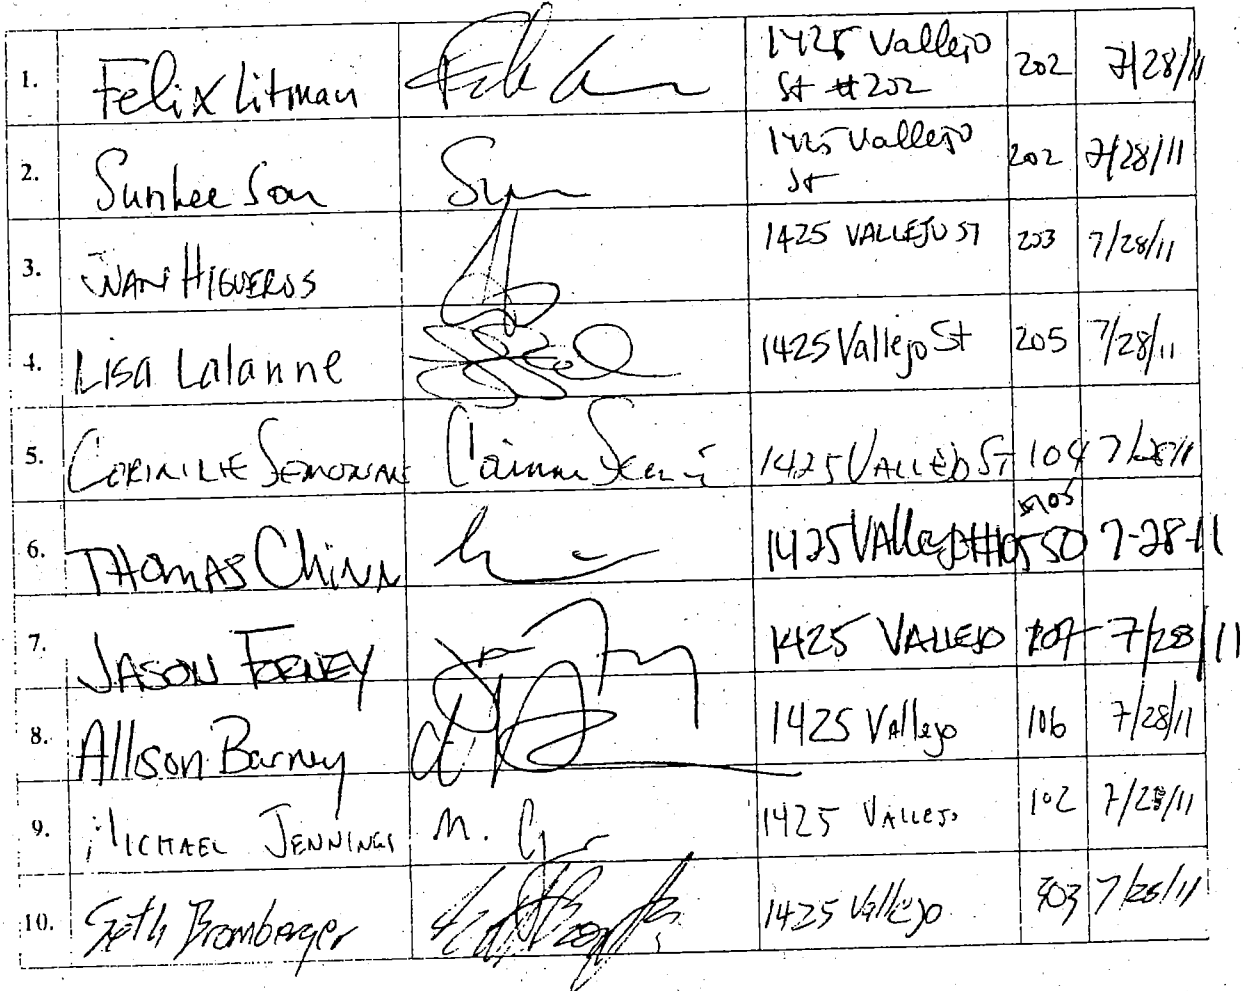 1. Felix Litman 1425 Vallejo St #202 202 7/28/11
2. Sunhee Son 1425 Vallejo St 202 7/28/11
3. JUAN HIGUEROS 1425 VALLEJO ST 203 7/28/11
4. Lisa Lalanne 1425 Vallejo St 205 7/28/11
5. 1425 VALLEJO ST 104 7/28/11
6. THOMAS Chinn 1425 Vallejo #105 7-28-11
7. JASON FORNEY 1425 VALLEJO 7/28/11
8. Allison Barney 1425 Vallejo 106 7/28/11
9. MICHAEL JENNINGS M. 1425 VALLEJO 102 7/28/11
10. Seth Bromberger 1425 Vallejo 303 7/28/11